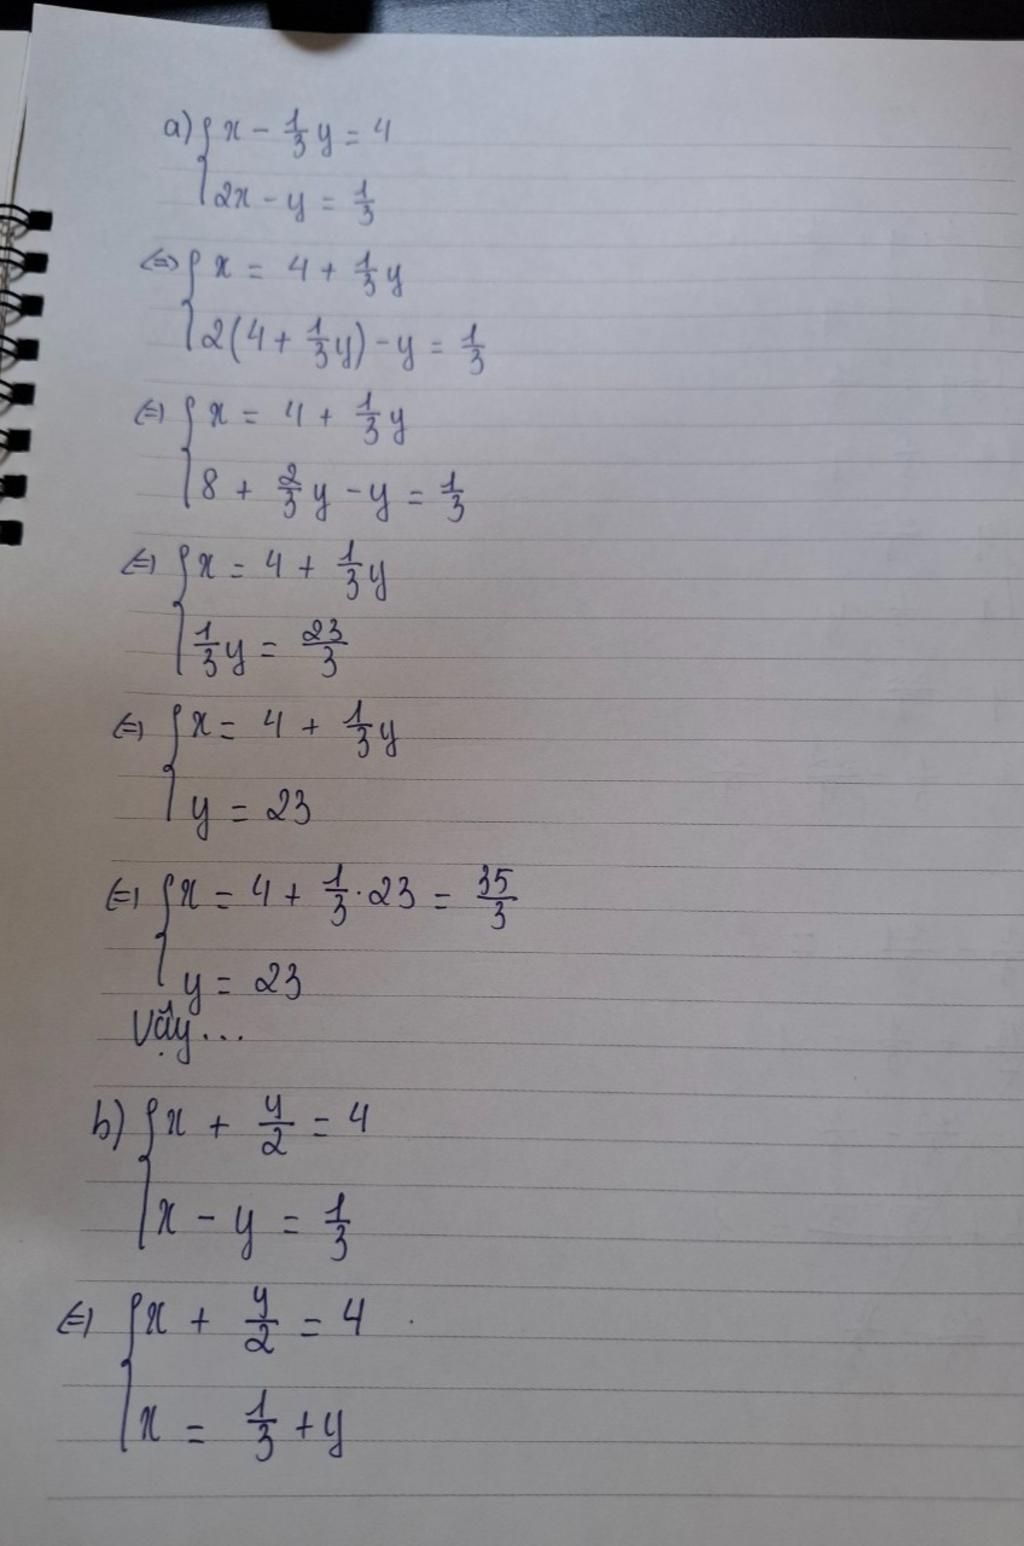 a) { x - 1/3 y = 4
2x - y = 1/3
<=> { x = 4 + 1/3 y
2(4 + 1/3 y) - y = 1/3
<=> { x = 4 + 1/3 y
8 + 2/3 y - y = 1/3
<=> { x = 4 + 1/3 y
1/3 y = 23/3
<=> { x = 4 + 1/3 y
y = 23
<=> { x = 4 + 1/3 . 23 = 35/3
y = 23
Vậy...
b) { x + y/2 = 4
x - y = 1/3
<=> { x + y/2 = 4
x = 1/3 + y